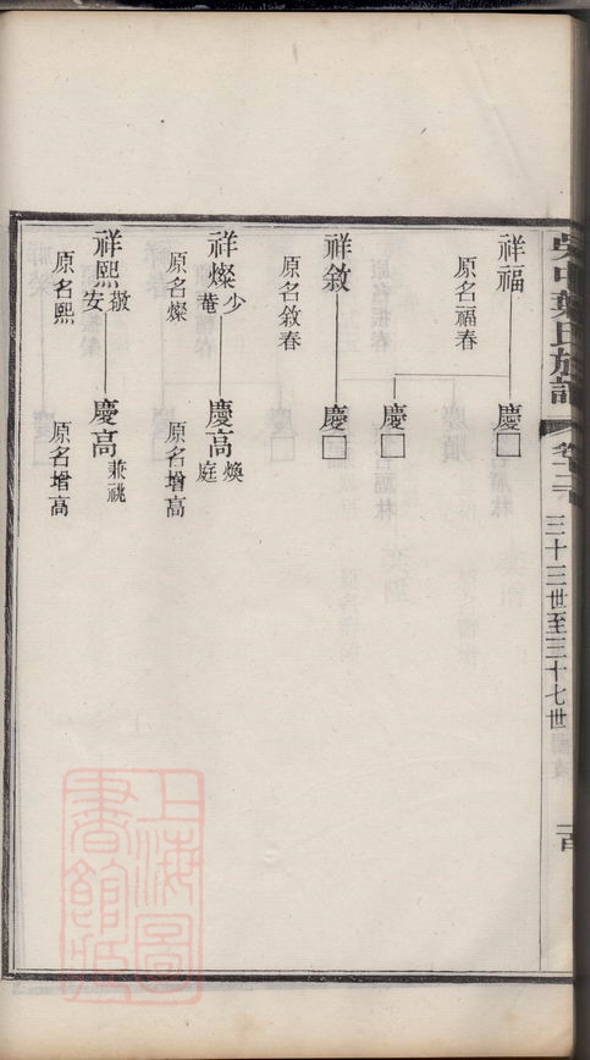 吳中葉氏族譜
三十三世至三十七世
祥福
原名福春
慶□
慶□
祥敘
原名敘春
慶□
祥燦
少菴
原名燦
慶高
煥庭
原名增高
祥熙
敬安
原名熙
慶高
兼祧
原名增高
上海圖書館藏